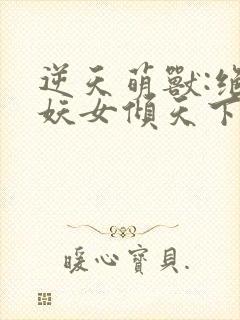 逆天萌獸:絕
妖女傾天下
暖心寶貝.